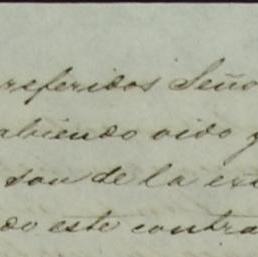 referidos Seño
abiendo oido y
son de la ex
do este contra